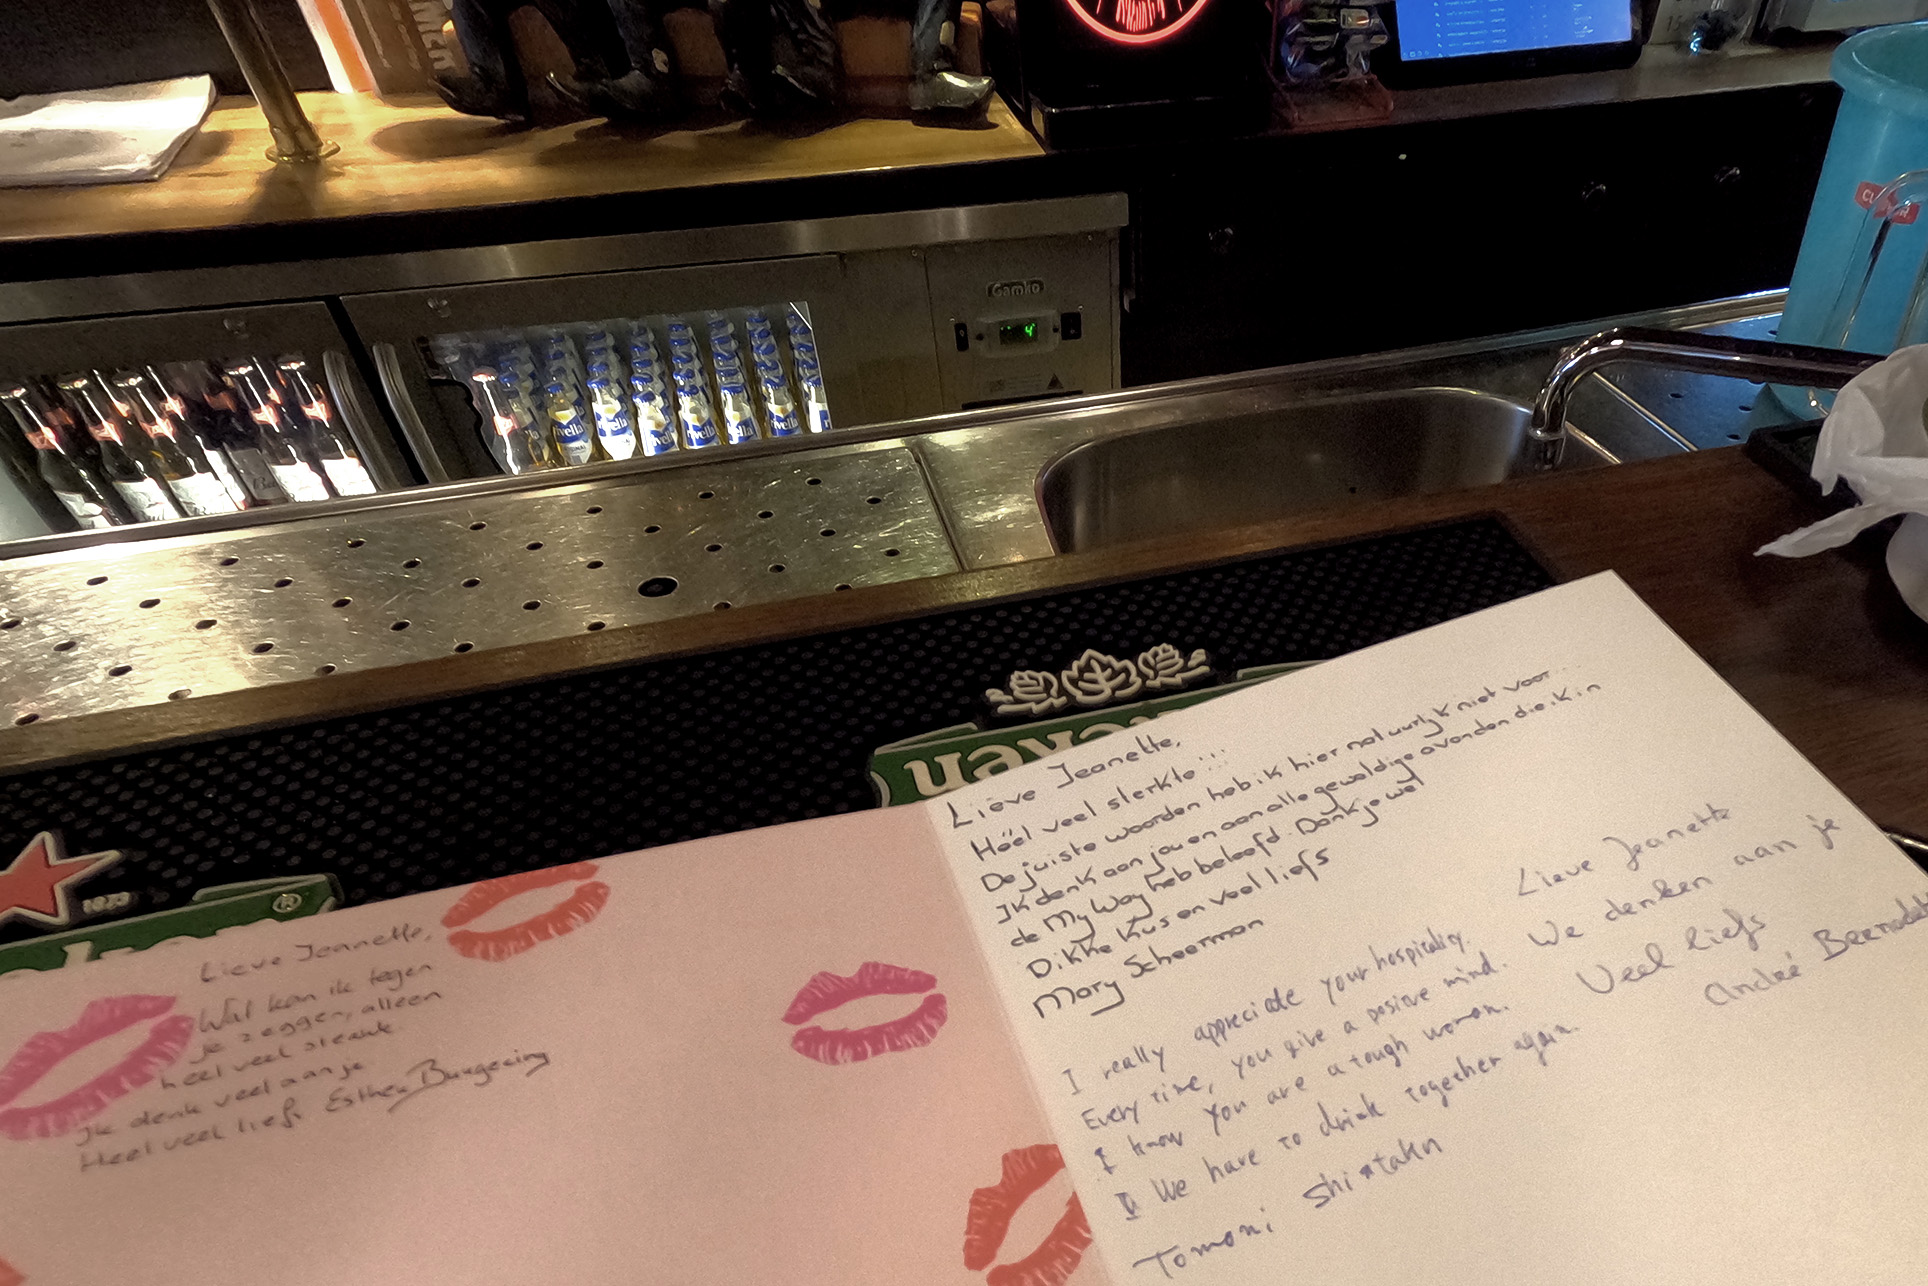 Gamko
4
rivella
rivella
rivella
Heineken
1873
®
Lieve Jeannette,
Wat kan ik tegen
je zeggen, alleen
heel veel sterkte
Ik denk veel aan je
Heel veel liefs Esther
Lieve Jeanette,
Héél veel sterkte!!!
De juiste woorden heb ik hier natuurlijk niet voor...
Ik denk aan jou en aan alle geweldige avonden die ik in
de My Way heb beleefd. Dankjewel
Dikke kus en veel liefs
Mary Scheerman
I really appreciate your hospitality.
Every time, you give a posive mind.
I know you are a tough woman.
We have to drink together again.
Tomomi
Lieve Jeanette
We denken aan je
Veel liefs
André